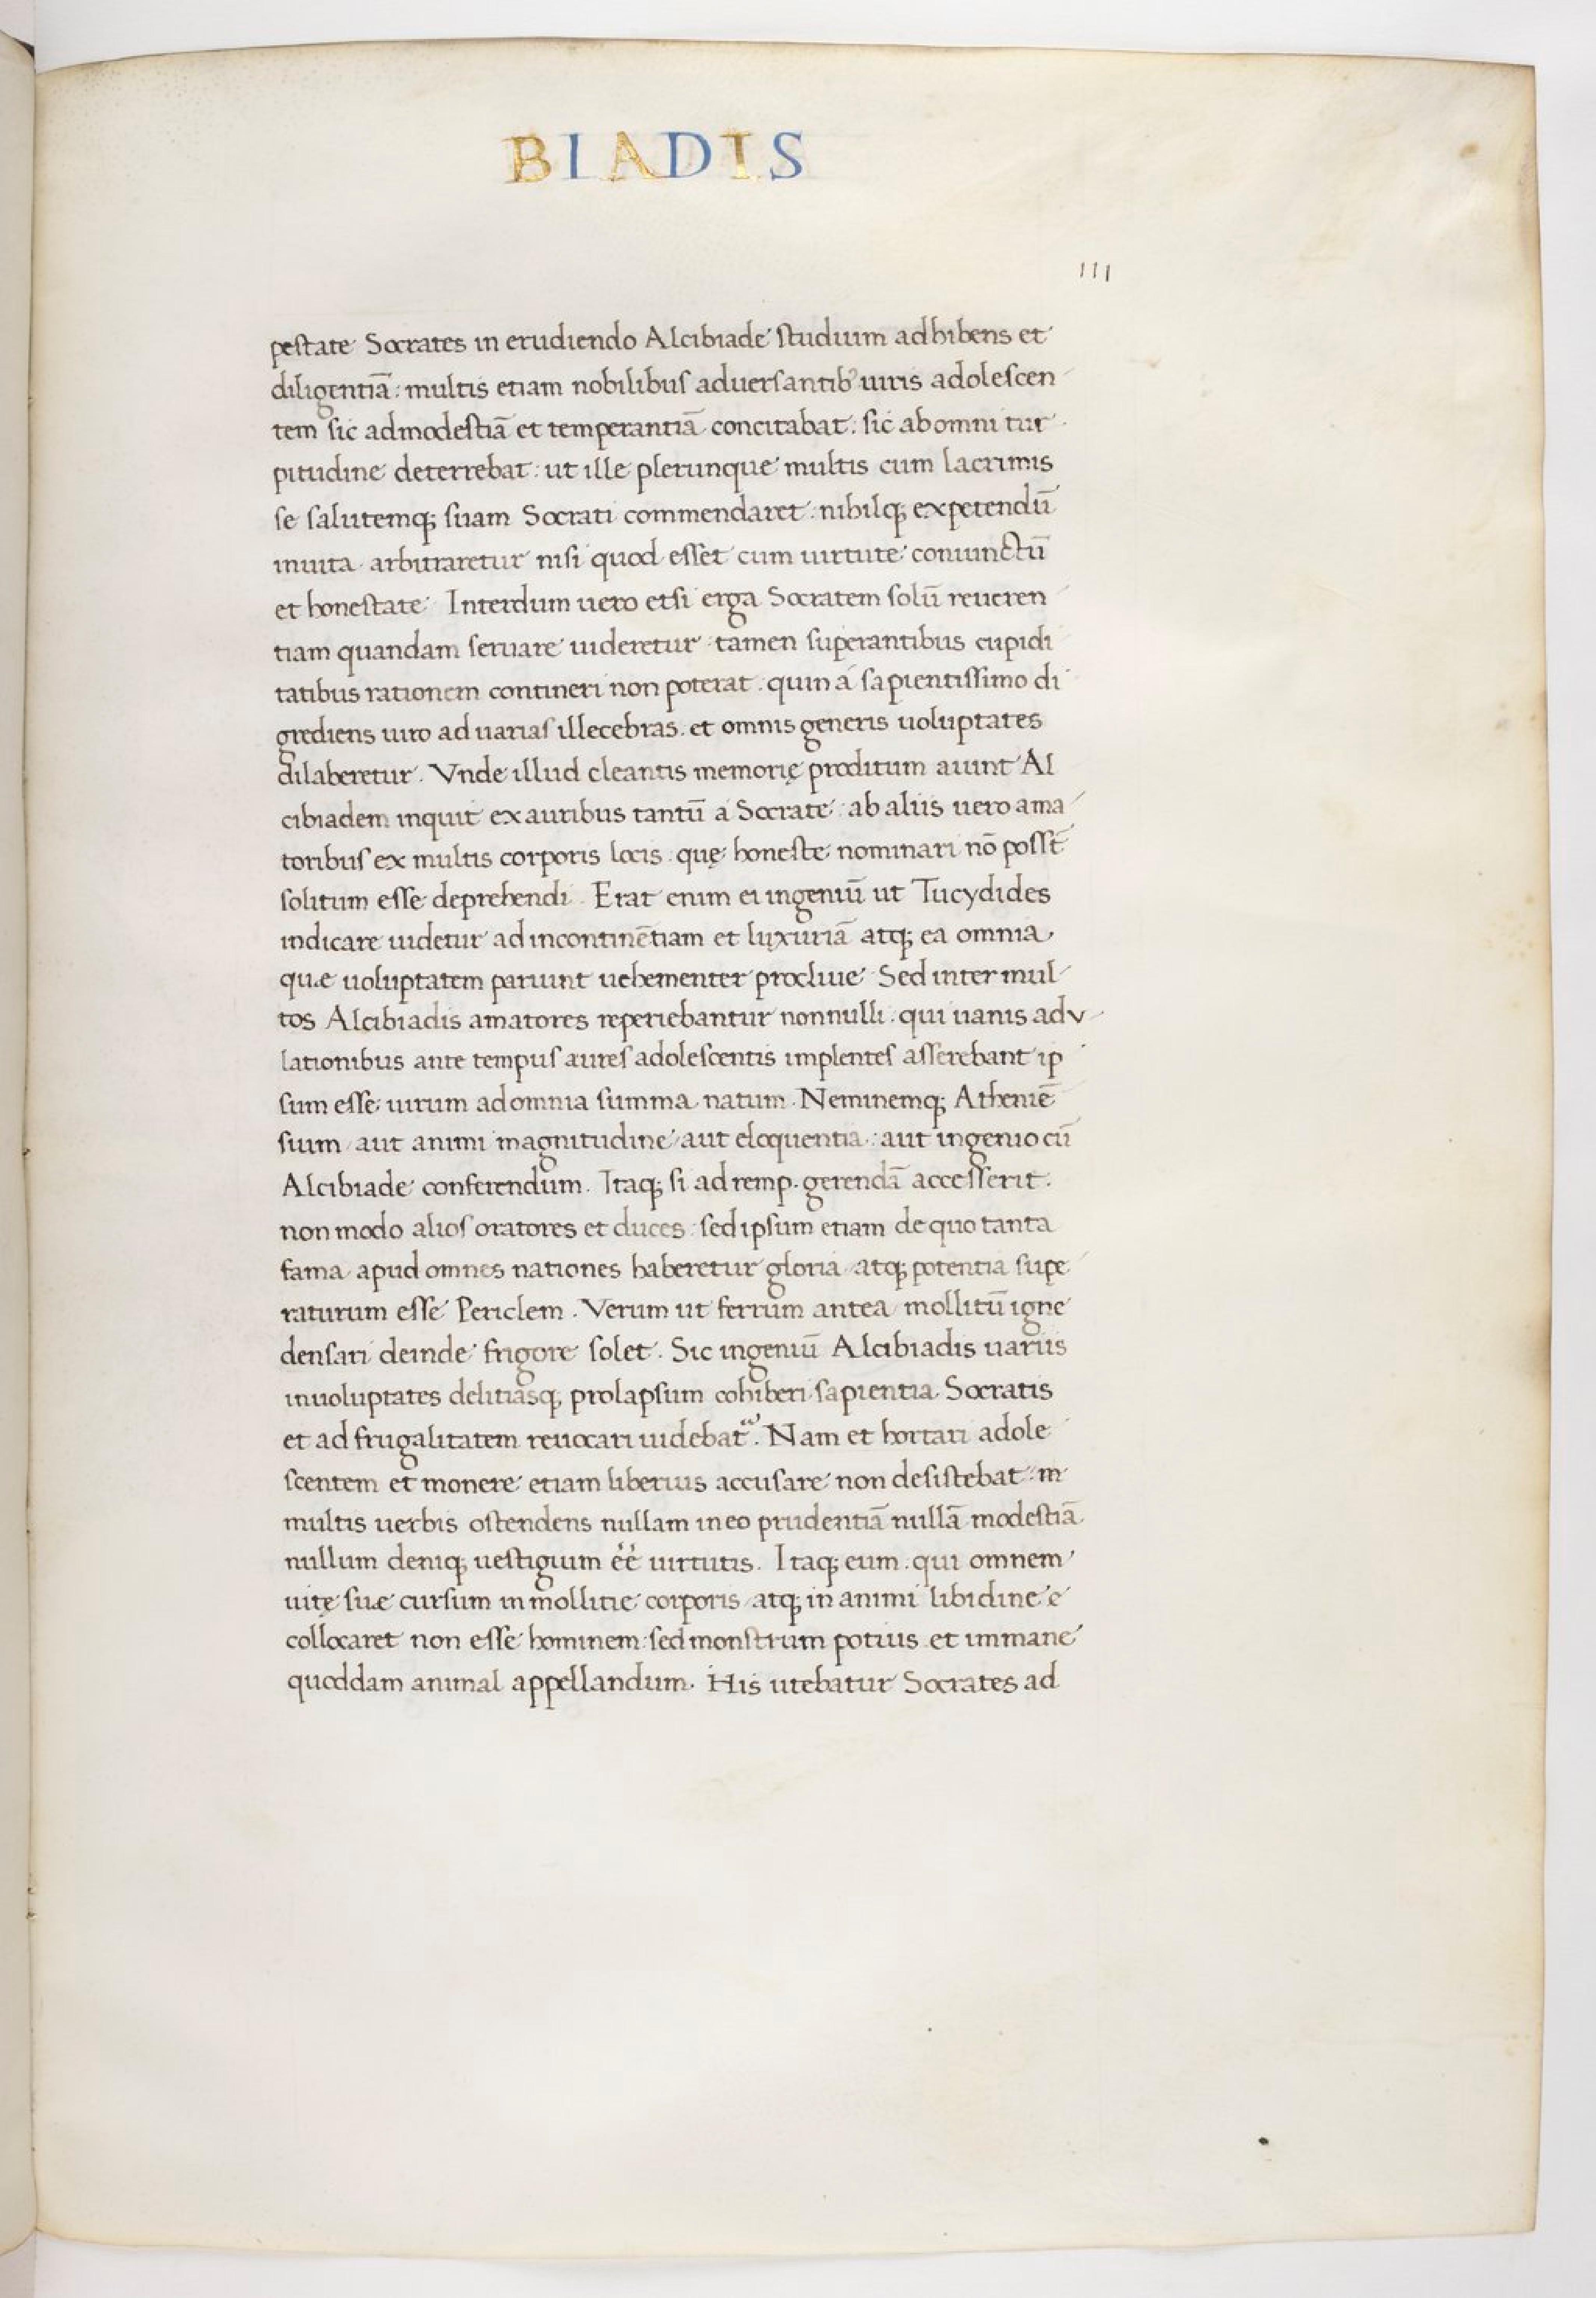 BIADIS
111
pestate Socrates in erudiendo Alcibiade studium adhibens et
diligentiā: multis etiam nobilibus aduersantibꝰ uiris adolescen
tem sic admodestiā et temperantiā concitabat: sic abomni tur
pitudine deterrebat: ut ille plerunque multis cum lacrimis
se salutemq; suam Socrati commendaret: nihilq; expetendū
inuita arbitraretur nisi quod esset cum uirtute coniunctū
et honestate Interdum uero etsi erga Socratem solū reueren
tiam quandam seruare uideretur tamen superantibus cupidi
tatibus rationem contineri non poterat: quin á sapientissimo di
grediens uiro ad uarias illecebras. et omnis generis uoluptates
dilaberetur. Vnde illud cleantis memorię proditum aiunt Al
cibiadem inquit ex auribus tantū á Socrate: ab aliis uero ama
toribus ex multis corporis locis: quę honeste nominari nō possēt
solitum esse deprehendi. Erat enim ei ingeniū ut Tucydides
indicare uidetur ad incontinētiam et luxuriā atq; ea omnia
quæ uoluptatem pariunt uehementer procliue. Sed inter mul
tos Alcibiadis amatores reperiebantur nonnulli: qui uanis adv
lationibus ante tempus aures adolescentis implentes asserebant ip
sum esse uirum adomnia summa natum. Neminemq; Atheniē
sium aut animi magnitudine aut eloquentia: aut ingenio cū
Alcibiade conferendum. Itaq; si ad remp. gerendā accesserit.
non modo alios oratores et duces: sed ipsum etiam de quo tanta
fama apud omnes nationes haberetur gloria atq; potentia supe
raturum esse Periclem. Verum ut ferrum antea mollitū igne
densari deinde frigore solet. Sic ingeniū Alcibiadis uariis
inuoluptates delitiasq; prolapsum cohiberi sapientia Socratis
et ad frugalitatem reuocari uidebat᷒. Nam et hortari adole
scentem et monere etiam liberius accusare non desistebat: in
multis uerbis ostendens nullam ineo prudentiā nullā modestiā
nullum deniq; uestigium éé uirtutis. Itaq; eum. qui omnem
uitę suæ cursum in mollitie corporis atq; in animi libidine e
collocaret non esse hominem: sed monstrum potius et immane
quoddam animal appellandum. His utebatur Socrates ad